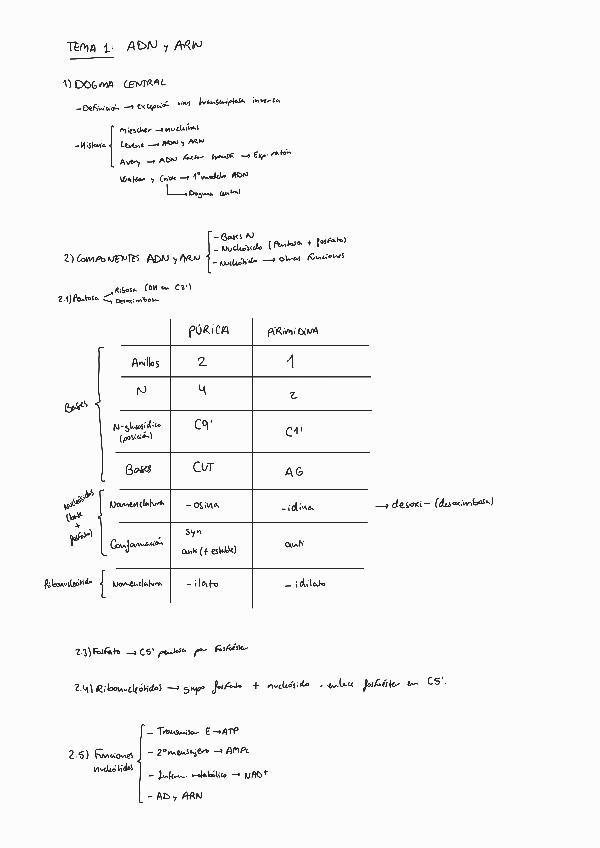 TEMA 1: ADN y ARN
1) DOGMA CENTRAL
- Definición → excepción virus transcriptasa inversa
- Historia
Miescher → nucleínas
Levene → ADN y ARN
Avery → ADN factor → Exp. ratón
Watson y Crick → 1º modelo ADN
→ Dogma central
2) COMPONENTES ADN y ARN
- Bases N
- Nucleósido (Pentosa + fosfato)
- Nucleótido → otras funciones
2.1) Pentosa
Ribosa (OH en C2')
Desoxirribosa
PÚRICA PIRIMIDINA
Bases
Anillos 2 1
N 4 2
N-glucosídico (posición) C9' C1'
Bases CUT AG
Nucleósidos (base + fosfato)
Nomenclatura -osina -idina → desoxi- (desoxirribosa)
Conformación syn anti (+ estable) anti
Ribonucleótido
Nomenclatura -ilato -idilato
2.3) Fosfato → C5' pentosa por fosfoéster
2.4) Ribonucleótidos → grupo fosfato + nucleósido. enlace fosfoéster en C5'.
2.5) Funciones nucleótidos
- Transmisor E → ATP
- 2º mensajero → AMPc
- Interm. metabólico → NAD+
- AD y ARN